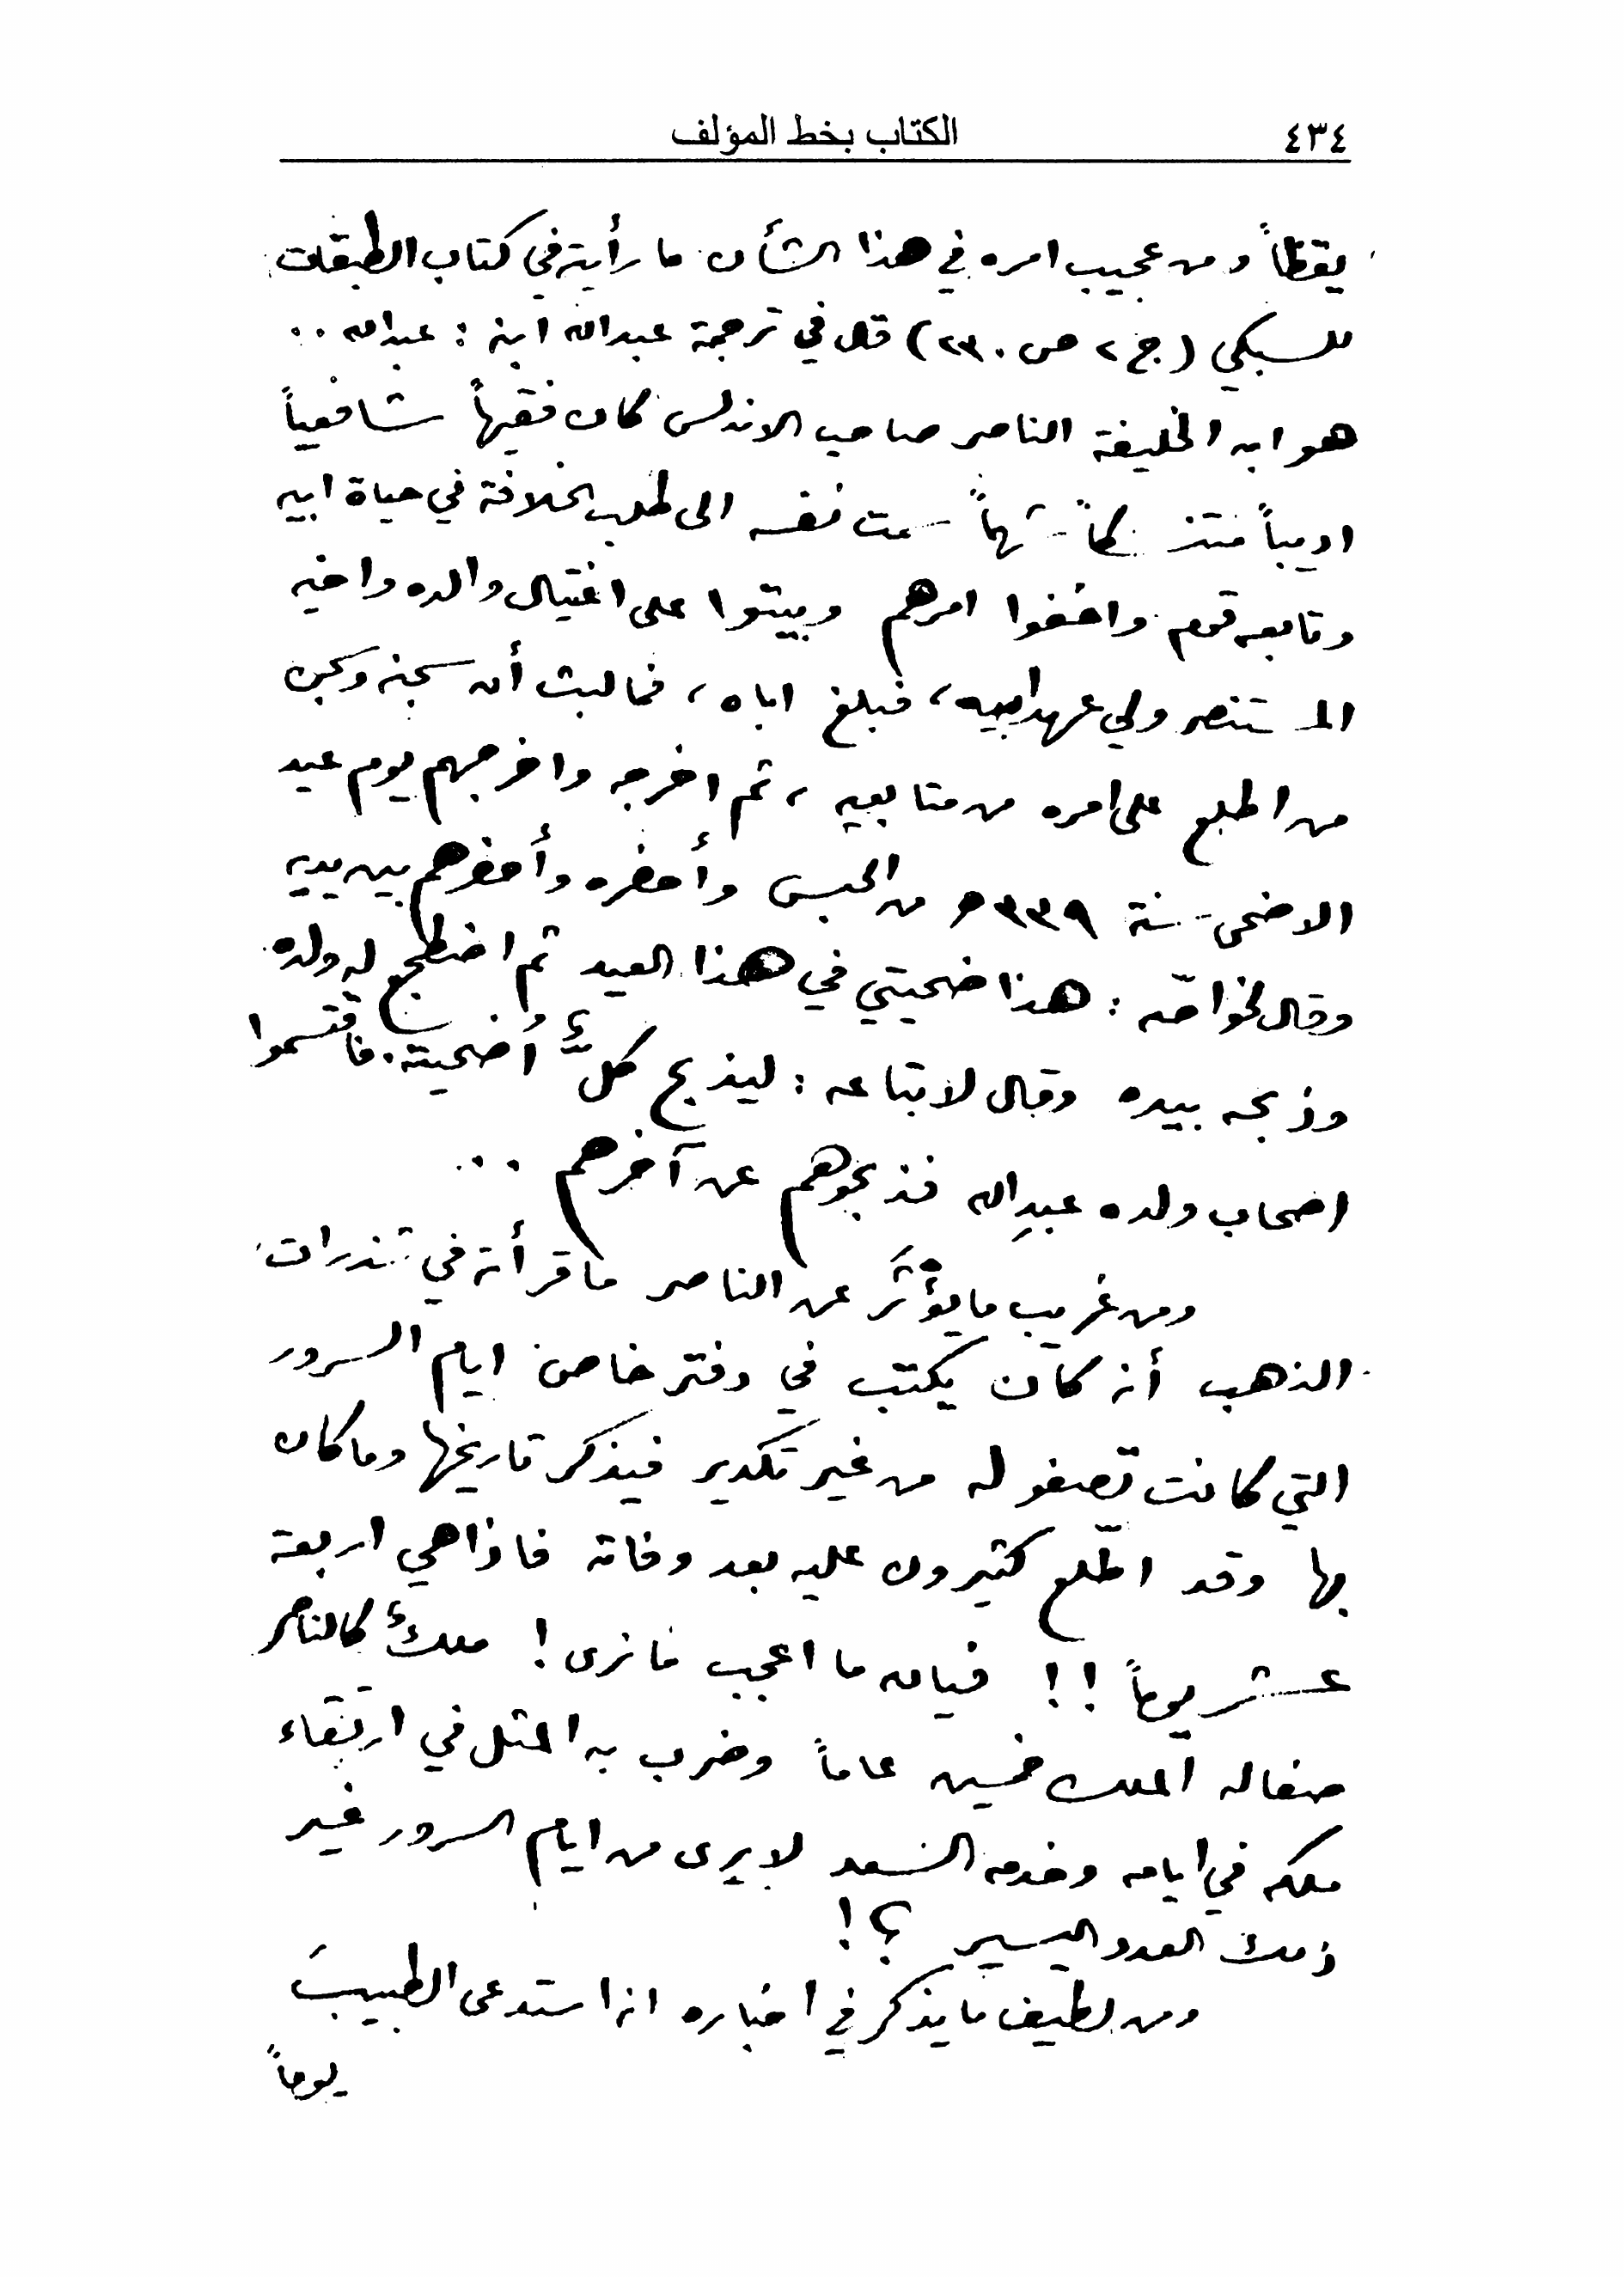 ٤٣٤ الكتاب بخط المؤلف
يقظاً ومن عجيب امره في هذا الشأن ما رأيته في كتاب الطبقات
للسبكي (ج ٢ ص ٢٣٠) قال في ترجمة عبدالله ابنه : عبدالله ..
هو ابن الخليفة الناصر صاحب الاندلس كان فقيهاً شافعياً
اديباً متنسكاً شهماً سمت نفسه الى طلب الخلافة في حياة ابيه
وتابعه قوم واخفوا امرهم وبيتوا على اغتيال والده واخيه
المستنصر ولي عهد ابيه ، فبلغ اباه ، فما لبث أن سجنه وسجن
من اطلع على امره من متابعيه ، ثم اخرجه واخرجهم يوم عيد
الاضحى سنة ٣٣٩ هـ من الحبس وأحضره وأحضرهم بين يديه
وقال لخواصّه : هذا ضحيتي في هذا العيد ثم اضطجع له ولده
وذبحه بيده وقال لاتباعه : ليذبح كلٌّ أُضحيته . فاقتسموا
اصحاب ولده عبدِالله فذبحوهم عن آخرهم ...
ومن غريب ما يؤْثَر عن الناصر ما قرأته في شذرات
الذهب أنه كان يكتب في دفتر خاص ايام السرور
التي كانت تصفو له من غير تكدير فيذكر تاريخها وما كان
بها وقد اطّلع كثيرون عليه بعد وفاته فاذا هي اربعة
عشر يوماً !! فيالله ما اعجب ما نرى ! ملكٌ كالناصر
صفا له الملك خمسين عاماً وضرب به المثل في ارتقاء
ملكه في ايامه وخدمه السعد لا يرى من ايام السرور غير
ذلك العدد اليسير ؟!
ومن لطيف ما يذكر في اخباره انه استدعى الطبيبَ
يوماً